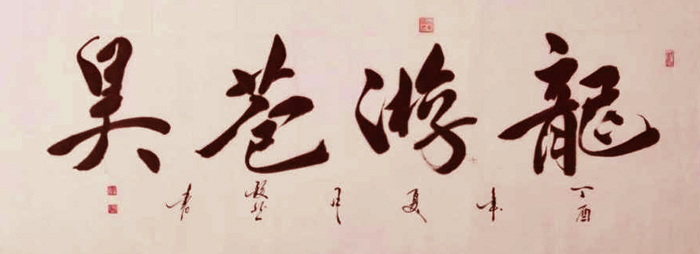 龍游苍昊
丁酉年夏月 書